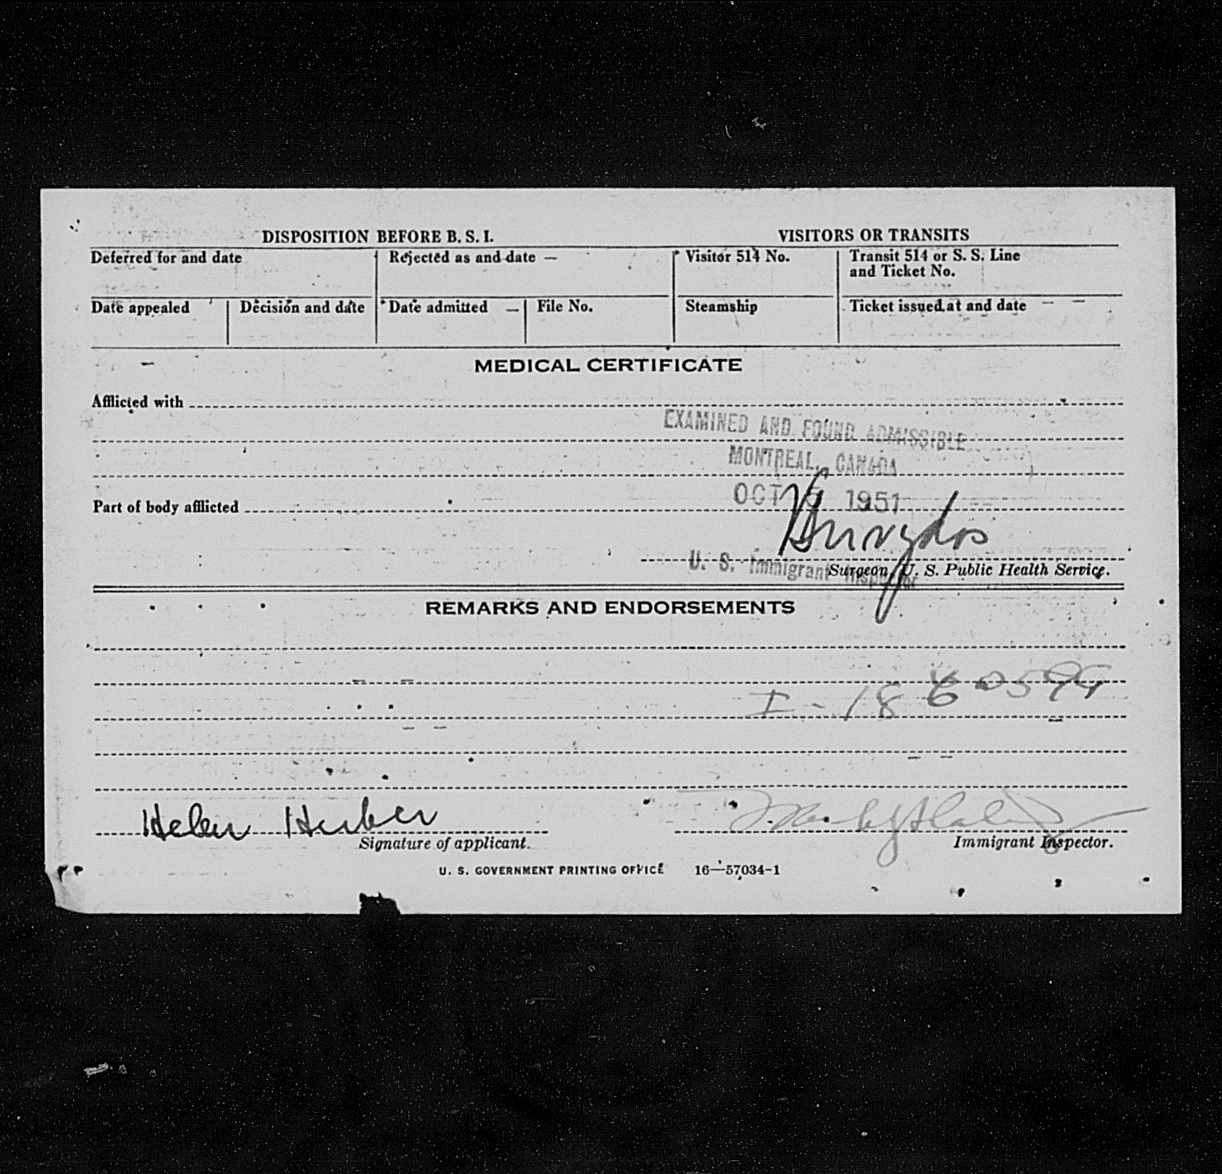 DISPOSITION BEFORE B. S. I. VISITORS OR TRANSITS
Deferred for and date Rejected as and date Visitor 514 No. Transit 514 or S. S. Line
and Ticket No.
Date appealed Decision and date Date admitted File No. Steamship Ticket issued at and date
MEDICAL CERTIFICATE
Afflicted with
EXAMINED AND FOUND ADMISSIBLE
MONTREAL, CANADA
Part of body afflicted OCT 1951
U. S. Immigrant Inspector
Surgeon, U. S. Public Health Service.
REMARKS AND ENDORSEMENTS
I-1860599
Helen Huber
Signature of applicant. Immigrant Inspector.
U. S. GOVERNMENT PRINTING OFFICE 16—57034-1